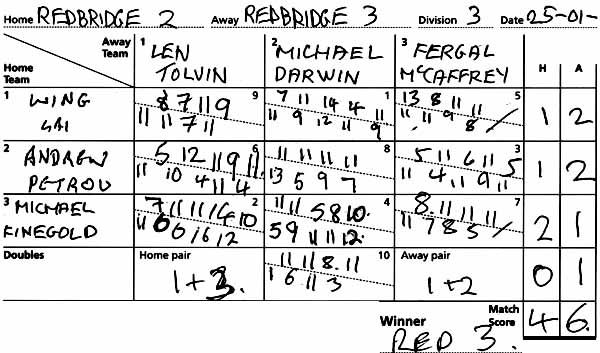 Home REDBRIDGE 2 Away REDBRIDGE 3 Division 3 Date 25-01-
Away Team 1 LEN 2 MICHAEL 3 FERGAL H A
Home Team TOLVIN DARWIN McCAFFREY
1 WING 8 7 11 9 9 7 11 14 4 11 1 13 8 11 11 5 1 2
SAI 11 11 7 11 11 9 12 11 9 11 11 9 8
2 ANDREW 5 12 11 9 11 6 11 11 11 11 8 5 11 6 11 5 3 1 2
PETROV 11 10 4 11 4 13 5 9 7 11 4 11 9 11
3 MICHAEL 7 11 11 14 10 2 11 11 5 8 10 4 8 11 11 11 7 2 1
FINEGOLD 11 6 6 16 12 5 9 11 11 12 11 7 8 5
Doubles Home pair 11 11 8 11 10 Away pair 0 1
1+3. 1 6 11 3 1+2
Match Score 4 6
Winner RED 3.